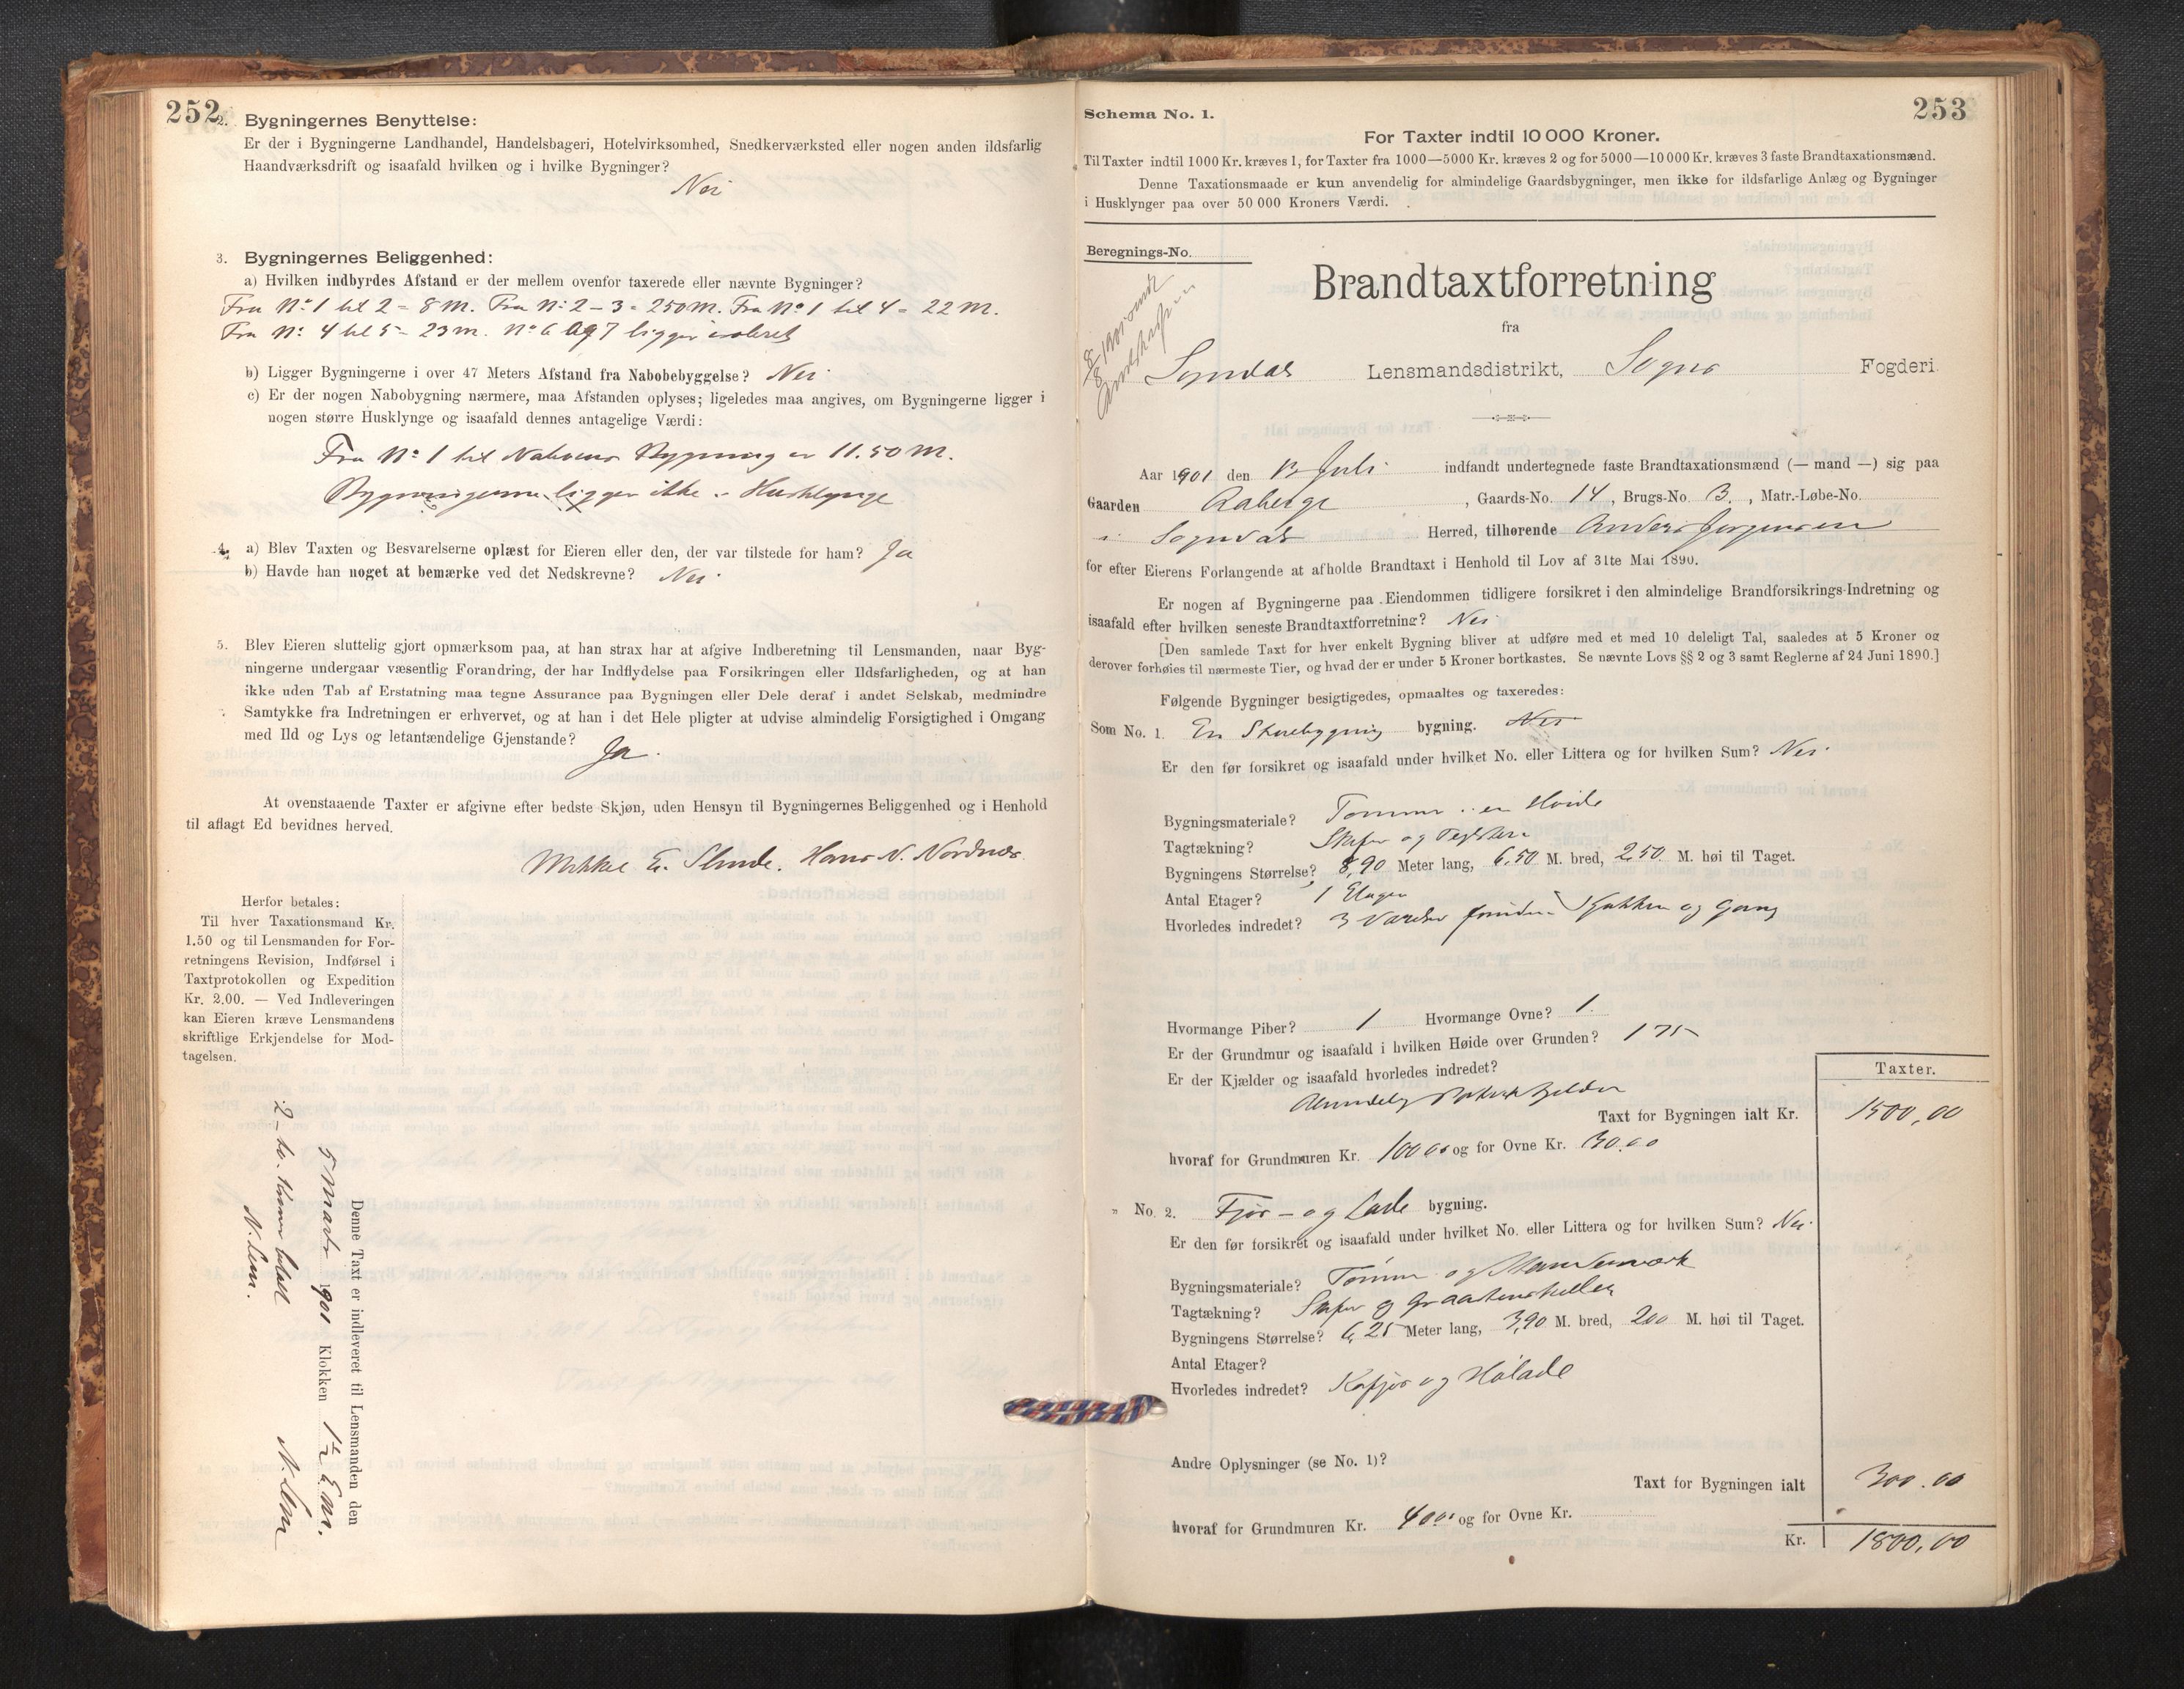 252
2. Bygningernes Benyttelse:
Er der i Bygningerne Landhandel, Handelsbageri, Hotelvirksomhed, Snedkerværksted eller nogen anden ildsfarlig
Haandværksdrift og isaafald hvilken og i hvilke Bygninger?
Nei
3. Bygningernes Beliggenhed:
a) Hvilken indbyrdes Afstand er der mellem ovenfor taxerede eller nævnte Bygninger?
Fra No 1 til 2 = 8 M. Fra No 2 – 3 = 250 M. Fra No 1 til 4 = 22 M.
Fra No 4 til 5 = 23 m. No 6 og 7 ligger isoleret
b) Ligger Bygningerne i over 47 Meters Afstand fra Nabobebyggelse? Nei
c) Er der nogen Nabobygning nærmere, maa Afstanden oplyses; ligeledes maa angives, om Bygningerne ligger i
nogen større Husklynge og isaafald dennes antagelige Værdi:
Fra No 1 til Naboens Bygning er 11.50 M.
Bygningerne ligger ikke i Husklynge
4. a) Blev Taxten og Besvarelserne oplæst for Eieren eller den, der var tilstede for ham? Ja
b) Havde han noget at bemærke ved det Nedskrevne? Nei
5. Blev Eieren sluttelig gjort opmærksom paa, at han strax har at afgive Indberetning til Lensmanden, naar Byg-
ningerne undergaar væsentlig Forandring, der har Indflydelse paa Forsikringen eller Ildsfarligheden, og at han
ikke uden Tab af Erstatning maa tegne Assurance paa Bygningen eller Dele deraf i andet Selskab, medmindre
Samtykke fra Indretningen er erhvervet, og at han i det Hele pligter at udvise almindelig Forsigtighed i Omgang
med Ild og Lys og letantændelige Gjenstande?
Ja.
At ovenstaaende Taxter er afgivne efter bedste Skjøn, uden Hensyn til Bygningernes Beliggenhed og i Henhold
til aflagt Ed bevidnes herved.
Mikkel E. Slinde. Hans N. Nordnæs
Herfor betales:
Til hver Taxationsmand Kr.
1.50 og til Lensmanden for For-
retningens Revision, Indførsel i
Taxtprotokollen og Expedition
Kr. 2.00. — Ved Indleveringen
kan Eieren kræve Lensmandens
skriftlige Erkjendelse for Mod-
tagelsen.
Denne Taxt er indleveret til Lensmanden den
5 Marts 1901 Klokken 1 E.m.
N. Lem
2 – to. Kroner betalt
N. Lem.
253
Schema No. 1.
For Taxter indtil 10 000 Kroner.
Til Taxter indtil 1000 Kr. kræves 1, for Taxter fra 1000—5000 Kr. kræves 2 og for 5000—10 000 Kr. kræves 3 faste Brandtaxationsmænd.
Denne Taxationsmaade er kun anvendelig for almindelige Gaardsbygninger, men ikke for ildsfarlige Anlæg og Bygninger
i Husklynger paa over 50 000 Kroners Værdi.
Beregnings-No.
Brandtaxtforretning
fra
Sogndal Lensmandsdistrikt, Sogns Fogderi
Aar 1901 den 13 Juli indfandt undertegnede faste Brandtaxationsmænd (— mand —) sig paa
Gaarden Aaberge, Gaards-No. 14, Brugs-No. 3., Matr.-Løbe-No.
i Sogndals Herred, tilhørende Anders Jørgensen
for efter Eierens Forlangende at afholde Brandtaxt i Henhold til Lov af 31te Mai 1890.
Er nogen af Bygningerne paa Eiendommen tidligere forsikret i den almindelige Brandforsikrings-Indretning og
isaafald efter hvilken seneste Brandtaxtforretning? Nei
[Den samlede Taxt for hver enkelt Bygning bliver at udføre med et med 10 deleligt Tal, saaledes at 5 Kroner og
derover forhøies til nærmeste Tier, og hvad der er under 5 Kroner bortkastes. Se nævnte Lovs §§ 2 og 3 samt Reglerne af 24 Juni 1890.]
Følgende Bygninger besigtigedes, opmaaltes og taxeredes:
Som No. 1. En Stuebygning bygning. Nei
Er den før forsikret og isaafald under hvilket No. eller Littera og for hvilken Sum? Nei
Bygningsmateriale? Tømmer i en Høide
Tagtækning? Skifer og Teglsten
Bygningens Størrelse? 8,90 Meter lang, 6,50 M. bred, 2,50 M. høi til Taget.
Antal Etager? 1 Etager
Hvorledes indredet? 3 Værelser foruden Kjøkken og Gang
Hvormange Piber? 1 Hvormange Ovne? 1.
Er der Grundmur og isaafald i hvilken Høide over Grunden? 1 75
Er der Kjælder og isaafald hvorledes indredet?
Almindelig Potetkjelder
Taxter.
Taxt for Bygningen ialt Kr. 1500,00
hvoraf for Grundmuren Kr. 100 00 og for Ovne Kr. 30.00
" No. 2. Fjøs – og Lade bygning.
Er den før forsikret og isaafald under hvilket No. eller Littera og for hvilken Sum? Nei
Bygningsmateriale? Tømmer og Standerverk
Tagtækning? Skifer og Graastensheller
Bygningens Størrelse? 6,25 Meter lang, 3,90 M. bred, 200 M. høi til Taget.
Antal Etager?
Hvorledes indredet? Kofjøs og Hølade
Andre Oplysninger (se No. 1)?
Taxt for Bygningen ialt 300.00
hvoraf for Grundmuren Kr. 40.00 og for Ovne Kr.
Kr. 1800,00